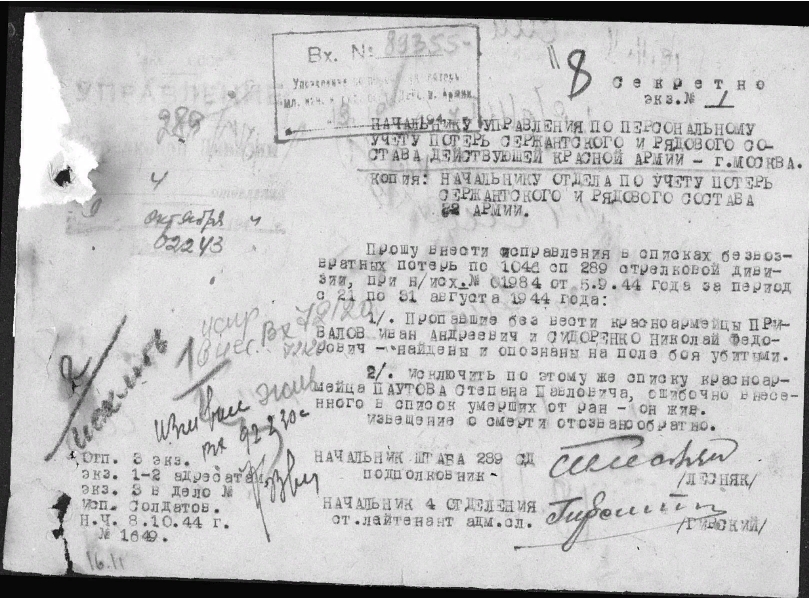 Вх. № 89355-
8
Секретно
экз. № 1
УПРАВЛЕНИЕ
289
4
9 октября 4
02243
НАЧАЛЬНИКУ УПРАВЛЕНИЯ ПО ПЕРСОНАЛЬНОМУ
УЧЕТУ ПОТЕРЬ СЕРЖАНТСКОГО И РЯДОВОГО СО-
СТАВА ДЕЙСТВУЮЩЕЙ КРАСНОЙ АРМИИ - г.МОСКВА.
КОПИЯ: НАЧАЛЬНИКУ ОТДЕЛА ПО УЧЕТУ ПОТЕРЬ
СЕРЖАНТСКОГО И РЯДОВОГО СОСТАВА
АРМИИ.
Прошу внести исправления в списках безвоз-
вратных потерь по 1048 сп 289 стрелковой диви-
зии, при н/исх.№ 01984 от 5.9.44 года за период
с 21 по 31 августа 1944 года:
1/. Пропавшие без вести красноармейцы ПРИ-
ВАЛОВ Иван Андреевич и СИДОРЕНКО Николай Федо-
рович - найдены и опознаны на поле боя убитыми.
2/. Исключить по этому же списку красноар-
мейца ПАУТОВА Степана Павловича, ошибочно внесе-
нного в список умерших от ран - он жив.
Извещение о смерти отозвано обратно.
Вх 78120
жив
вх 92830с
НАЧАЛЬНИК ШТАБА 289 СД
подполковник -
/ЛЕСНЯК/
НАЧАЛЬНИК 4 ОТДЕЛЕНИЯ
ст.лейтенант адм.сл.
/ГИРСКИЙ/
Отп. 3 экз.
экз. 1-2 адресатам
экз. 3 в дело №
Исп. Солдатов.
Н.Ч. 8.10.44 г.
№ 1649.
16.11